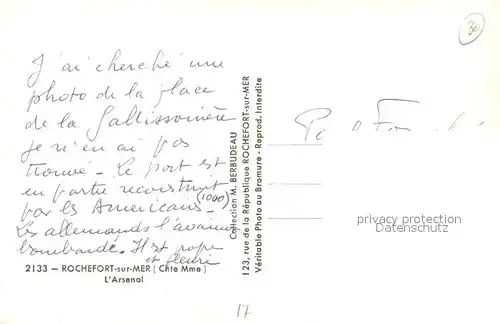 30
J'ai cherché une
photo de la place
de la Gallissonière
je n'en ai pas
trouvé - Le port est
en partie reconstruit
par les Américains - (1000)
Les allemands l'avaient
bombardé. Il est propre
et fleuri
2133 — ROCHEFORT-sur-MER ( Chte Mme )
L'Arsenal
Collection M. BERBUDEAU
123, rue de la République ROCHEFORT-sur-MER
Véritable Photo au Bromure - Reprod. Interdite
privacy protection
Datenschutz
17